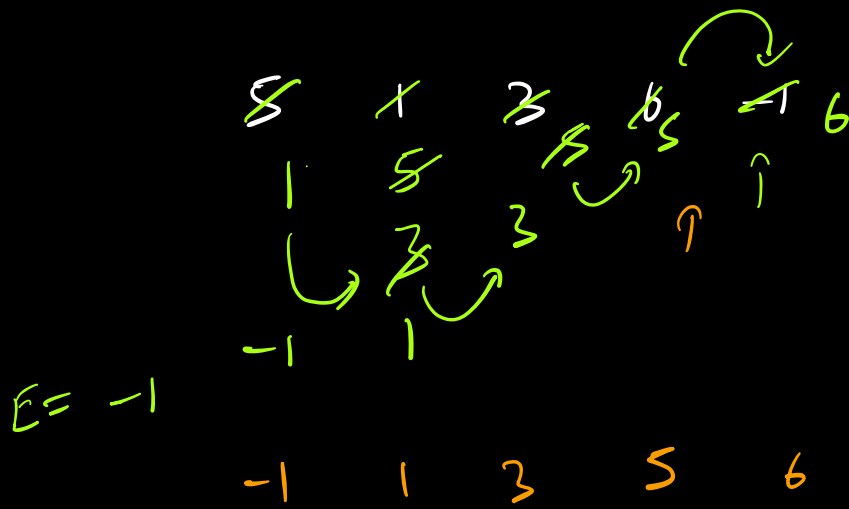 5 1 3 6 -1 6
1 5 5 5
3 3
-1 1
E= -1
-1 1 3 5 6